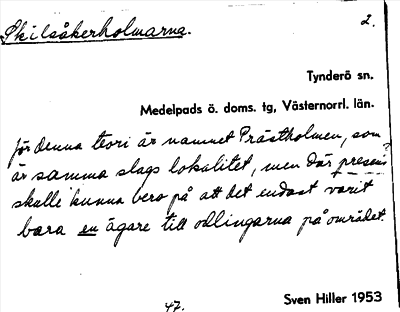 Skilsåkerholmarna.
2.
Tynderö sn.
Medelpads ö. doms. tg, Västernorrl. län.
för denna teori är namnet Prästholmen, som
är samma slags lokalitet, men där presens
skulle kunna bero på att det endast varit
bara en ägare till odlingarna på området.
47.
Sven Hiller 1953